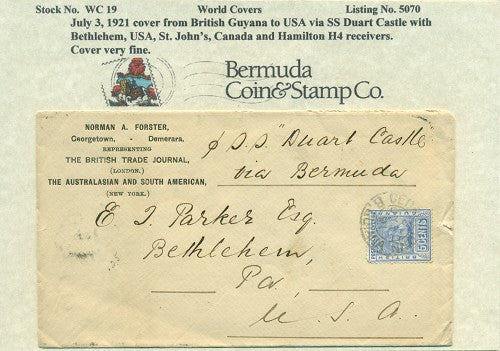 Stock No. WC 19 World Covers Listing No. 5070
July 3, 1921 cover from British Guyana to USA via SS Duart Castle with
Bethlehem, USA, St. John's, Canada and Hamilton H4 receivers.
Cover very fine.
Bermuda
Coin&Stamp Co.
NORMAN A. FORSTER,
Georgetown, - Demerara,
REPRESENTING
THE BRITISH TRADE JOURNAL,
(LONDON.)
THE AUSTRALASIAN AND SOUTH AMERICAN,
(NEW YORK.)
S.S. "Duart Castle
via Bermuda
E. J. Parker Esq.
Bethlehem,
Pa,
U. S. A.
BRITISH
5 CENTS